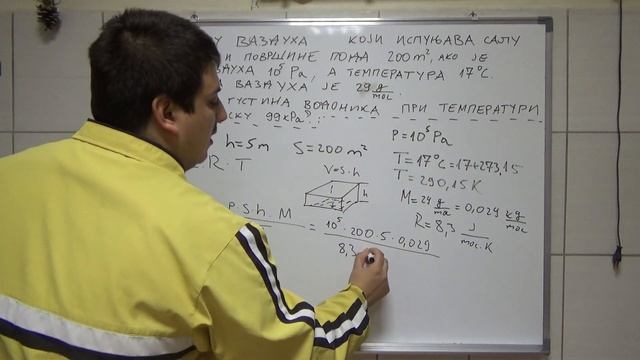 У ВАЗДУХА КОЈИ ИСПУЊАВА САЛУ
И ПОВРШИНЕ ПОДА 200m², АКО ЈЕ
ЗДУХА 10⁵ Pa, А ТЕМПЕРАТУРА 17°C.
ВАЗДУХА ЈЕ 29 g/mol.
ГУСТИНА ВОДОНИКА ПРИ ТЕМПЕРАТУРИ
СКУ 99kPa?
h=5m S=200m²
P=10⁵Pa
R·T
V=S·h
T=17°C=17+273,15
T=290,15K
h
M=29 g/mol=0,029 kg/mol
R=8,3 J/mol·K
P·S·h·M = 10⁵·200·5·0,029
8,3